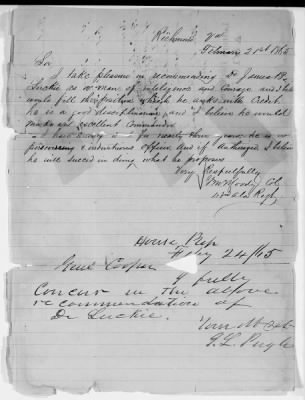 Richmond Va
February 21st 1865
Sir
I take pleasure in recommending Dr James B.
Luckie as a man of inteligence and courage and I believe
would fill the position which he asks with Credit.
he is a good disciplinarian and I believe he would
make an excellent Commander
I have known it for nearly three years he is
persevering & industrious officer and if Authorized I believe
he will succeed in doing what he proposes
Very Respectfully
M Woody Col
43 Ala Regt
House Rep
Feby 24/65
Genl Cooper
I fully
concur in the above
recommendation of
Dr Luckie.
Your Ob Svt
J. L. Pugh